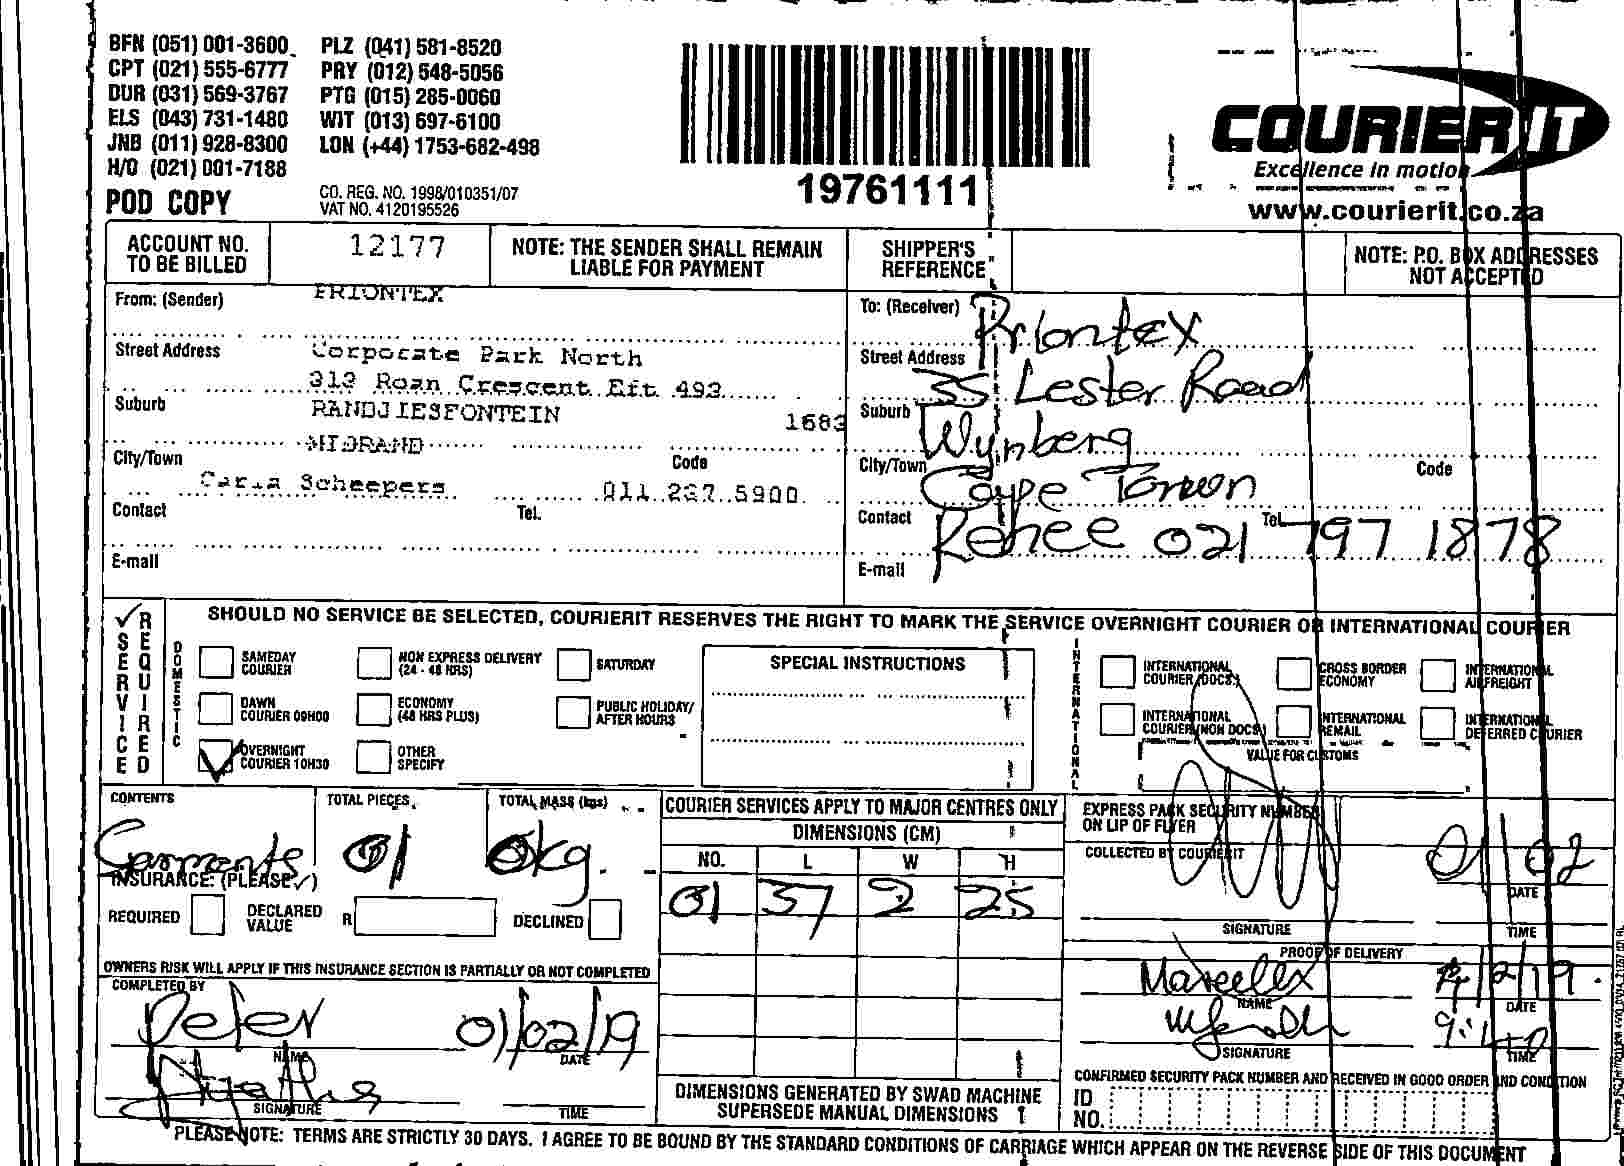 BFN (051) 001-3600 PLZ (041) 581-8520
CPT (021) 555-6777 PRY (012) 548-5056
DUR (031) 569-3767 PTG (015) 285-0060
ELS (043) 731-1480 WIT (013) 697-6100
JNB (011) 928-8300 LON (+44) 1753-682-498
H/O (021) 001-7188
POD COPY
CO. REG. NO. 1998/010351/07
VAT NO. 4120195526
19761111
COURIER IT
Excellence in motion
www.courierit.co.za
ACCOUNT NO. TO BE BILLED
12177
NOTE: THE SENDER SHALL REMAIN LIABLE FOR PAYMENT
SHIPPER'S REFERENCE
NOTE: P.O. BOX ADDRESSES NOT ACCEPTED
From: (Sender) PRIONTEX
Street Address Corporate Park North
313 Roan Crescent Eft 493
Suburb RANDJIESFONTEIN 1683
MIDRAND
City/Town Code
Carla Scheepers 011 237 5900
Contact Tel.
E-mail
To: (Receiver) Priontex
Street Address 35 Lester Road
Suburb Wynberg
City/Town Cape Town Code
Contact Renee Tel. 021 797 1878
E-mail
SERVICE REQUIRED
SHOULD NO SERVICE BE SELECTED, COURIERIT RESERVES THE RIGHT TO MARK THE SERVICE OVERNIGHT COURIER OR INTERNATIONAL COURIER
DOMESTIC
SAMEDAY COURIER
NON EXPRESS DELIVERY (24 - 48 HRS)
SATURDAY
DAWN COURIER 09H00
ECONOMY (48 HRS PLUS)
PUBLIC HOLIDAY/ AFTER HOURS
OVERNIGHT COURIER 10H30
OTHER SPECIFY
SPECIAL INSTRUCTIONS
INTERNATIONAL
INTERNATIONAL COURIER (DOCS.)
CROSS BORDER ECONOMY
INTERNATIONAL AIRFREIGHT
INTERNATIONAL COURIER (NON DOCS.)
INTERNATIONAL REMAIL
INTERNATIONAL DEFERRED COURIER
VALUE FOR CUSTOMS
CONTENTS
Garments
TOTAL PIECES
01
TOTAL MASS (kgs)
kg.
INSURANCE: (PLEASE ✓)
REQUIRED
DECLARED VALUE R
DECLINED
OWNERS RISK WILL APPLY IF THIS INSURANCE SECTION IS PARTIALLY OR NOT COMPLETED
COMPLETED BY
Peter 01/02/19
NAME DATE
SIGNATURE TIME
COURIER SERVICES APPLY TO MAJOR CENTRES ONLY
DIMENSIONS (CM)
NO. L W H
01 37 2 25
DIMENSIONS GENERATED BY SWAD MACHINE SUPERSEDE MANUAL DIMENSIONS
EXPRESS PACK SECURITY NUMBER ON LIP OF FLYER
COLLECTED BY COURIERIT
01/02
DATE
SIGNATURE TIME
PROOF OF DELIVERY
/2/19
NAME DATE
9:40
SIGNATURE TIME
CONFIRMED SECURITY PACK NUMBER AND RECEIVED IN GOOD ORDER AND CONDITION
ID NO.
PLEASE NOTE: TERMS ARE STRICTLY 30 DAYS. I AGREE TO BE BOUND BY THE STANDARD CONDITIONS OF CARRIAGE WHICH APPEAR ON THE REVERSE SIDE OF THIS DOCUMENT